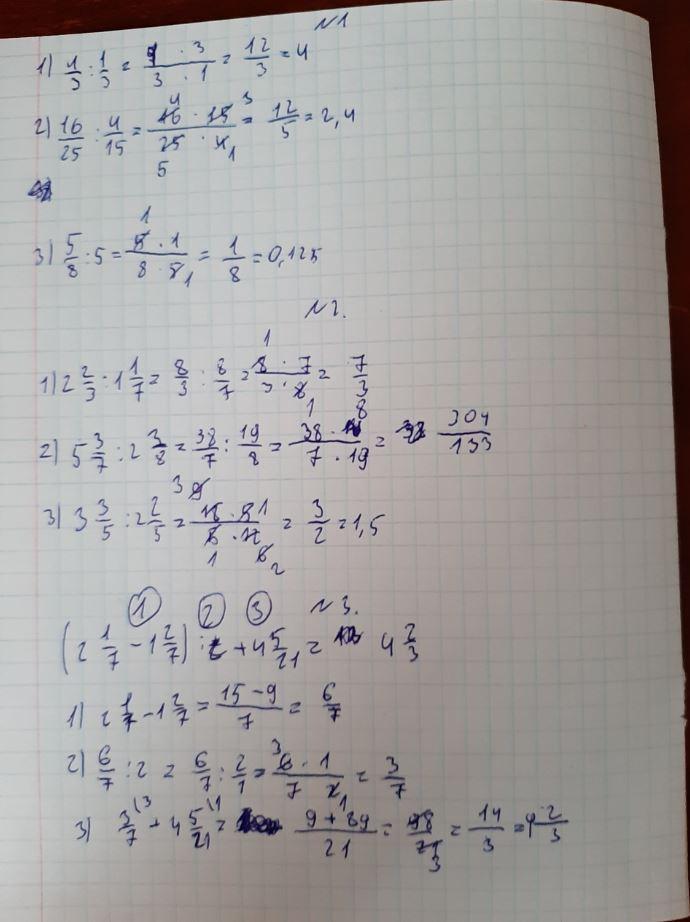 №1
1) 4/3 : 1/3 = 4 · 3 / 3 · 1 = 12/3 = 4
2) 16/25 : 4/15 = 16 · 15 / 25 · 4 = 12/5 = 2,4
3) 5/8 : 5 = 5 · 1 / 8 · 5 = 1/8 = 0,125
№2.
1) 2 2/3 : 1 1/7 = 8/3 : 8/7 = 8 · 7 / 3 · 8 = 7/3
2) 5 3/7 : 2 3/8 = 38/7 : 19/8 = 38 · 8 / 7 · 19 = 304/133
3) 3 3/5 : 2 2/5 = 18 · 5 / 5 · 12 = 3/2 = 1,5
① ② ③ №3.
(2 1/7 - 1 2/7) : 2 + 4 5/21 = 4 2/3
1) 2 1/7 - 1 2/7 = 15 - 9 / 7 = 6/7
2) 6/7 : 2 = 6/7 : 2/1 = 6 · 1 / 7 · 2 = 3/7
3) 3/7 + 4 5/21 = 9 + 89 / 21 = 98/21 = 14/3 = 4 2/3